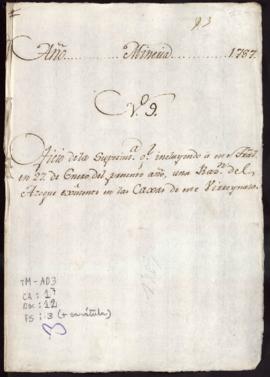 93
Añō ........ Mineria ........ 1787.
Nº. 9.
Oficio de la Supērint.ª g.l incluyendo à este Trāl.
en 27 de Enero del presente año, una Raz.n del
Azogue existente en las Caxas de este Virreynato.
TM-AD3
CA: 17
DOC: 12
FS: 3 (+ carátula)
3